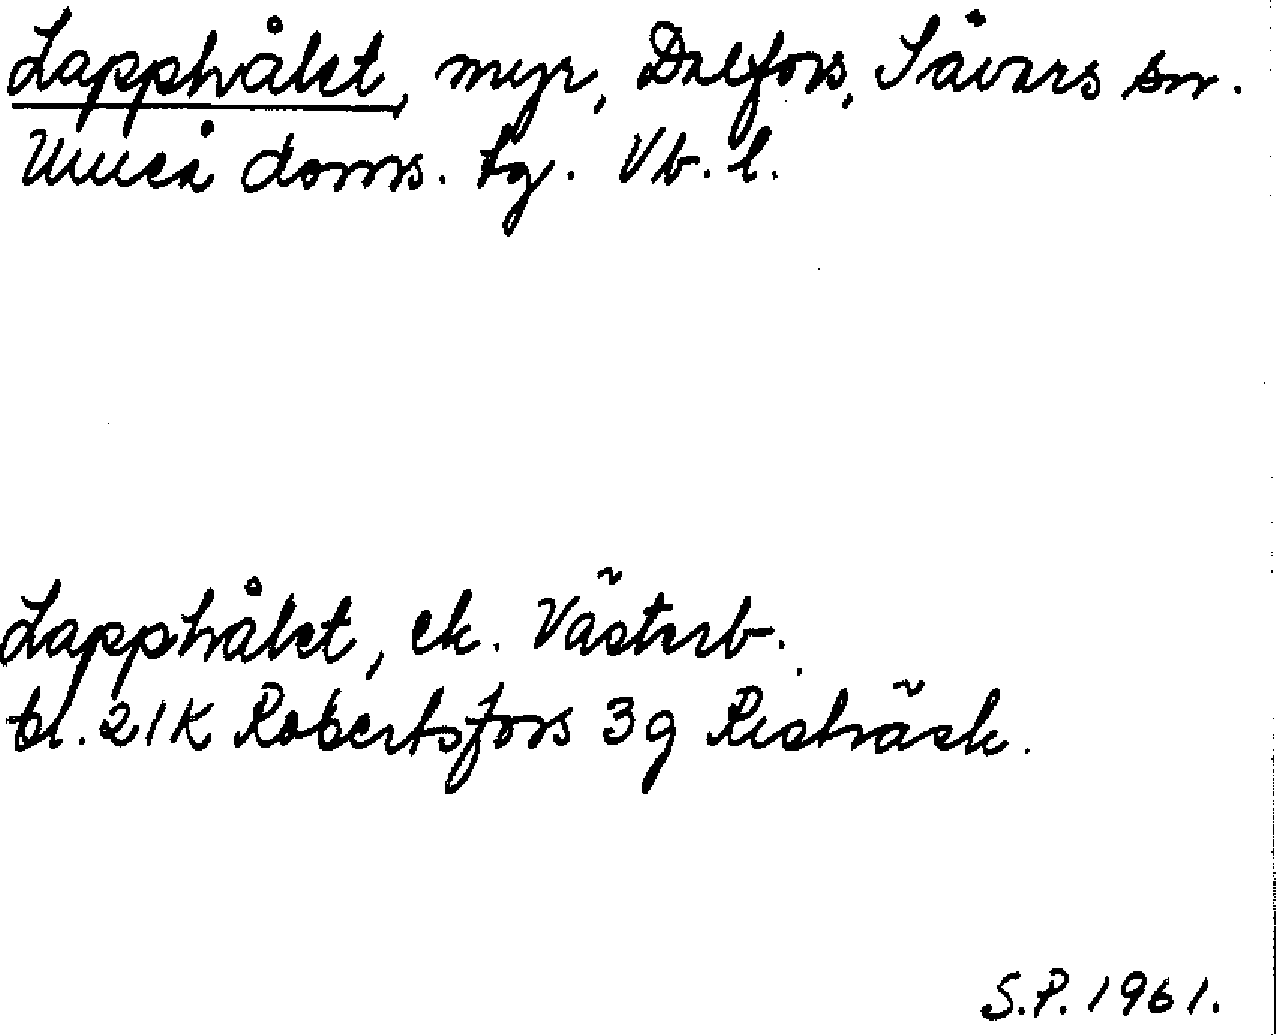 Lapphålet, myr, Dalfors, Sävars sn.
Umeå doms. tg. Vb. l.
Lapphålet, ek. Västerb.
bl. 21K Robertsfors 3g Risträsk.
S.P. 1961.